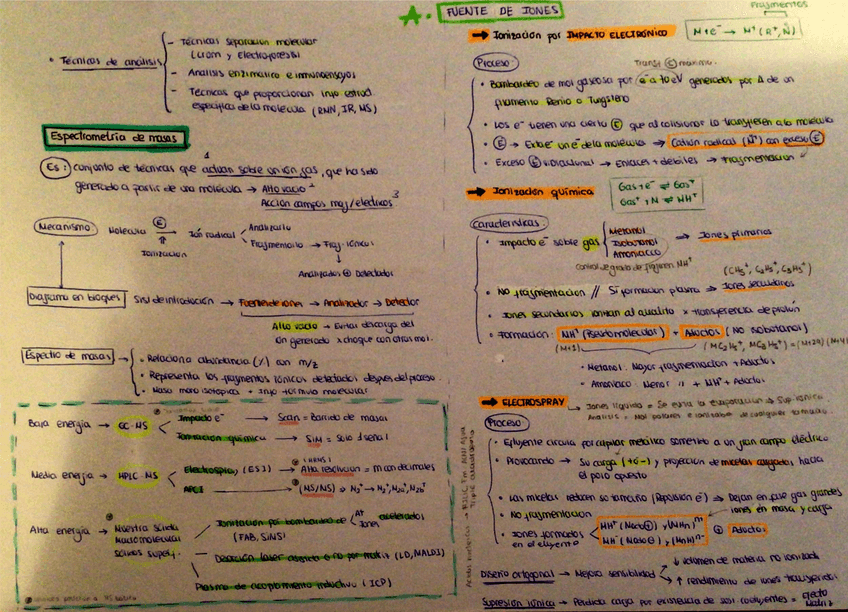 • Técnicas de análisis
- Técnicas separación molecular
(Crom y Electroforesis)
- Análisis enzimático e inmunoensayos
- Técnicas que proporcionan info estruct
específica de la molécula (RMN, IR, MS)
Espectrometría de masas
Es: conjunto de técnicas que actúan sobre un ión gas, que ha sido
generado a partir de una molécula → Alto vacío
Acción campos mag/eléctricos
Mecanismo
Molécula → Ión radical
E
Ionización
Analizarlo
Fragmentarlo → Frag. iónicos
Analizador ⊕ Detectador
Diagrama en bloques
Sist de introducción → Fuente de iones → Analizador → Detector
Alto vacío → Evitar descarga del
ión generado x choque con otras mol.
Espectro de masas →
• Relaciona abundancia (%) con m/z
• Representa los fragmentos iónicos detectados después del proceso.
• Masa monoisotópica + Info fórmula molecular
Baja energía → GC-MS
Impacto e- → Scan = Barrido de masas
Ionización química → SIM = Solo 1 señal
Media energía → HPLC-MS
Electrospray (ESI) → Alta resolución = m con decimales
(HRMS)
APCI
(MS/MS)
Alta energía →
Muestra sólida
Macromolecular
Sólidos superf.
Ionización por bombardeo de
Iones
acelerados
(FAB, SIMS)
Desorción láser asistida o no por matriz (LD, MALDI)
Plasma de acoplamiento inductivo (ICP)
A. FUENTE DE IONES
Fragmentos
→ Ionización por IMPACTO ELECTRÓNICO
Proceso:
• Bombardeo de mol gaseosa por e- a 70 eV generados por Δ de un
filamento Renio o Tungsteno
• Los e- tienen una cierta E que al colisionar la transfieren a la molécula
• E → Extrae un e- de la molécula → Catión radical (M+) con exceso E
• Exceso E vibracional → Enlaces + débiles → Fragmentación
→ Ionización química
Gas + e- ⇌ Gas+
Gas+ + M ⇌ MH+
Características:
• Impacto e- sobre gas
Metanol
Isobutanol
Amoniaco
⇒ Iones primarios
(CH5+, C2H5+, C3H5+)
• No fragmentación // Sí formación plasma → Iones secundarios
• Iones secundarios ionizan al analito x transferencia de protón
• Formación: MH+ (Pseudomolecular) + Aductos (No isobutanol)
(M+1)
• Metanol: Mayor fragmentación + Aductos
• Amoniaco: Menor " + MH+ Aductos
→ ELECTROSPRAY
→ Iones líquido = Se evita la evaporación ⇒ Sup iónica
Analisis = Mol polares e ionizables de cualquier tamaño.
Proceso:
• Efluyente circula por capilar metálico sometido a un gran campo eléctrico
• Provocando → Su carga (+ó-) y proyección de micelas cargadas hacia
el polo opuesto
• Las micelas reducen su tamaño (Repulsión e-) → Dejan en fase gas grandes
iones en masa y carga
• No fragmentación
• Iones formados
en el efluyente
⊕ Aductos
Diseño ortogonal → Mejora sensibilidad
↓ volumen de materia no ionizada
↑ rendimiento de iones transferidos
Supresión iónica → Pérdida carga por existencia de sust coeluyentes = efecto
matriz